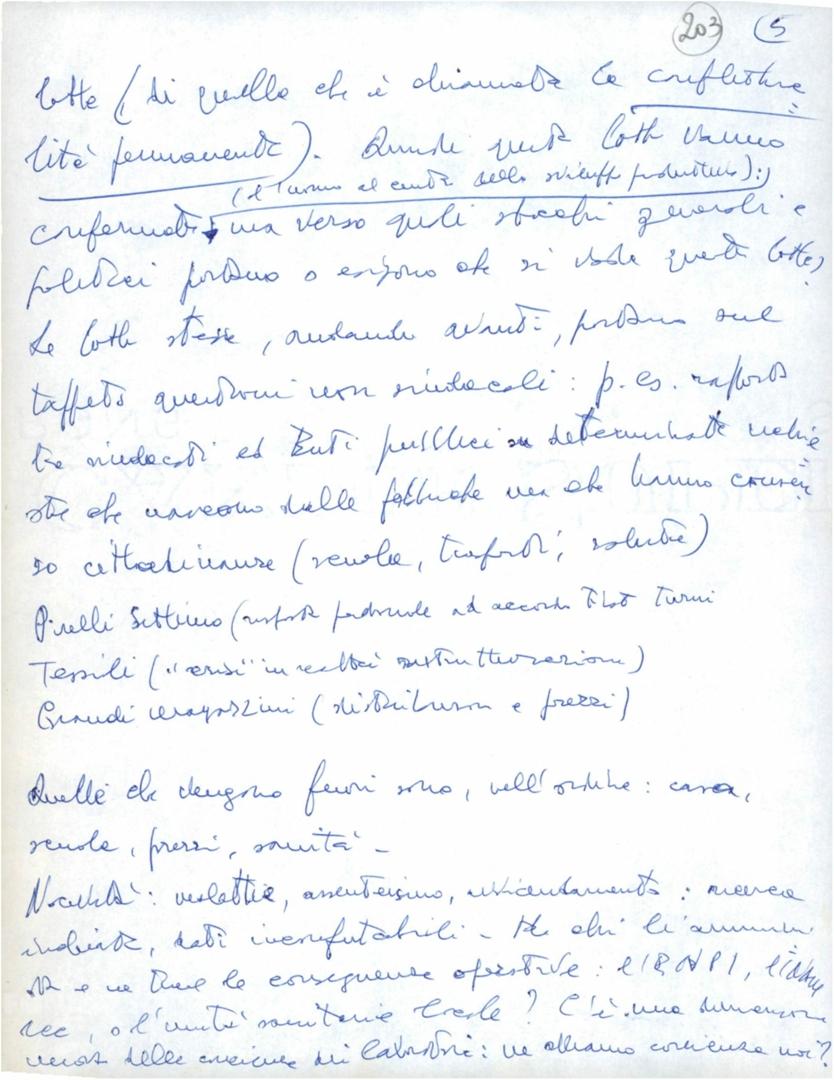 203 (5
lotte (di quella che è chiamata la conflittua=
lità permanente). Quindi queste lotte vanno
(l'uomo al centro dello sviluppo produttivo):)
confermate, ma verso quali sbocchi generali e
politici portano o esigono che si vada queste lotte?
Le lotte stesse, andando avanti, portano sul
tappeto questioni non sindacali: p. es. rapporto
tra sindacati ed Enti pubblici su determinate richie
ste che nascono dalle fabbriche ma che hanno
so cittadinanza (scuola, trasporti, salute)
Pirelli Settimo (risposta padronale ad accordo Fiat turni
Tessili ("crisi" in realtà ristrutturazione)
Grandi magazzini (distribuzione e prezzi)
Quelle che vengono fuori sono, nell'ordine: casa,
scuola, prezzi, sanità -
Nocività: malattie, assenteismo, : ricerca
inchieste, dati inconfutabili - Ma chi li
e ne trae le conseguenze operative: l'ENPI,
o l'unità sanitaria locale? C'è una dimensione
nuova della coscienza dei lavoratori: ne abbiamo coscienza noi?